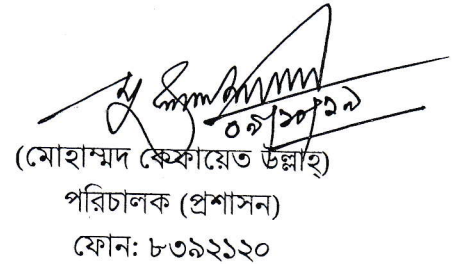 ০৯/১০/১৯
(মোহাম্মদ কেফায়েত উল্লাহ্)
পরিচালক (প্রশাসন)
ফোন: ৮৩৯২১২০